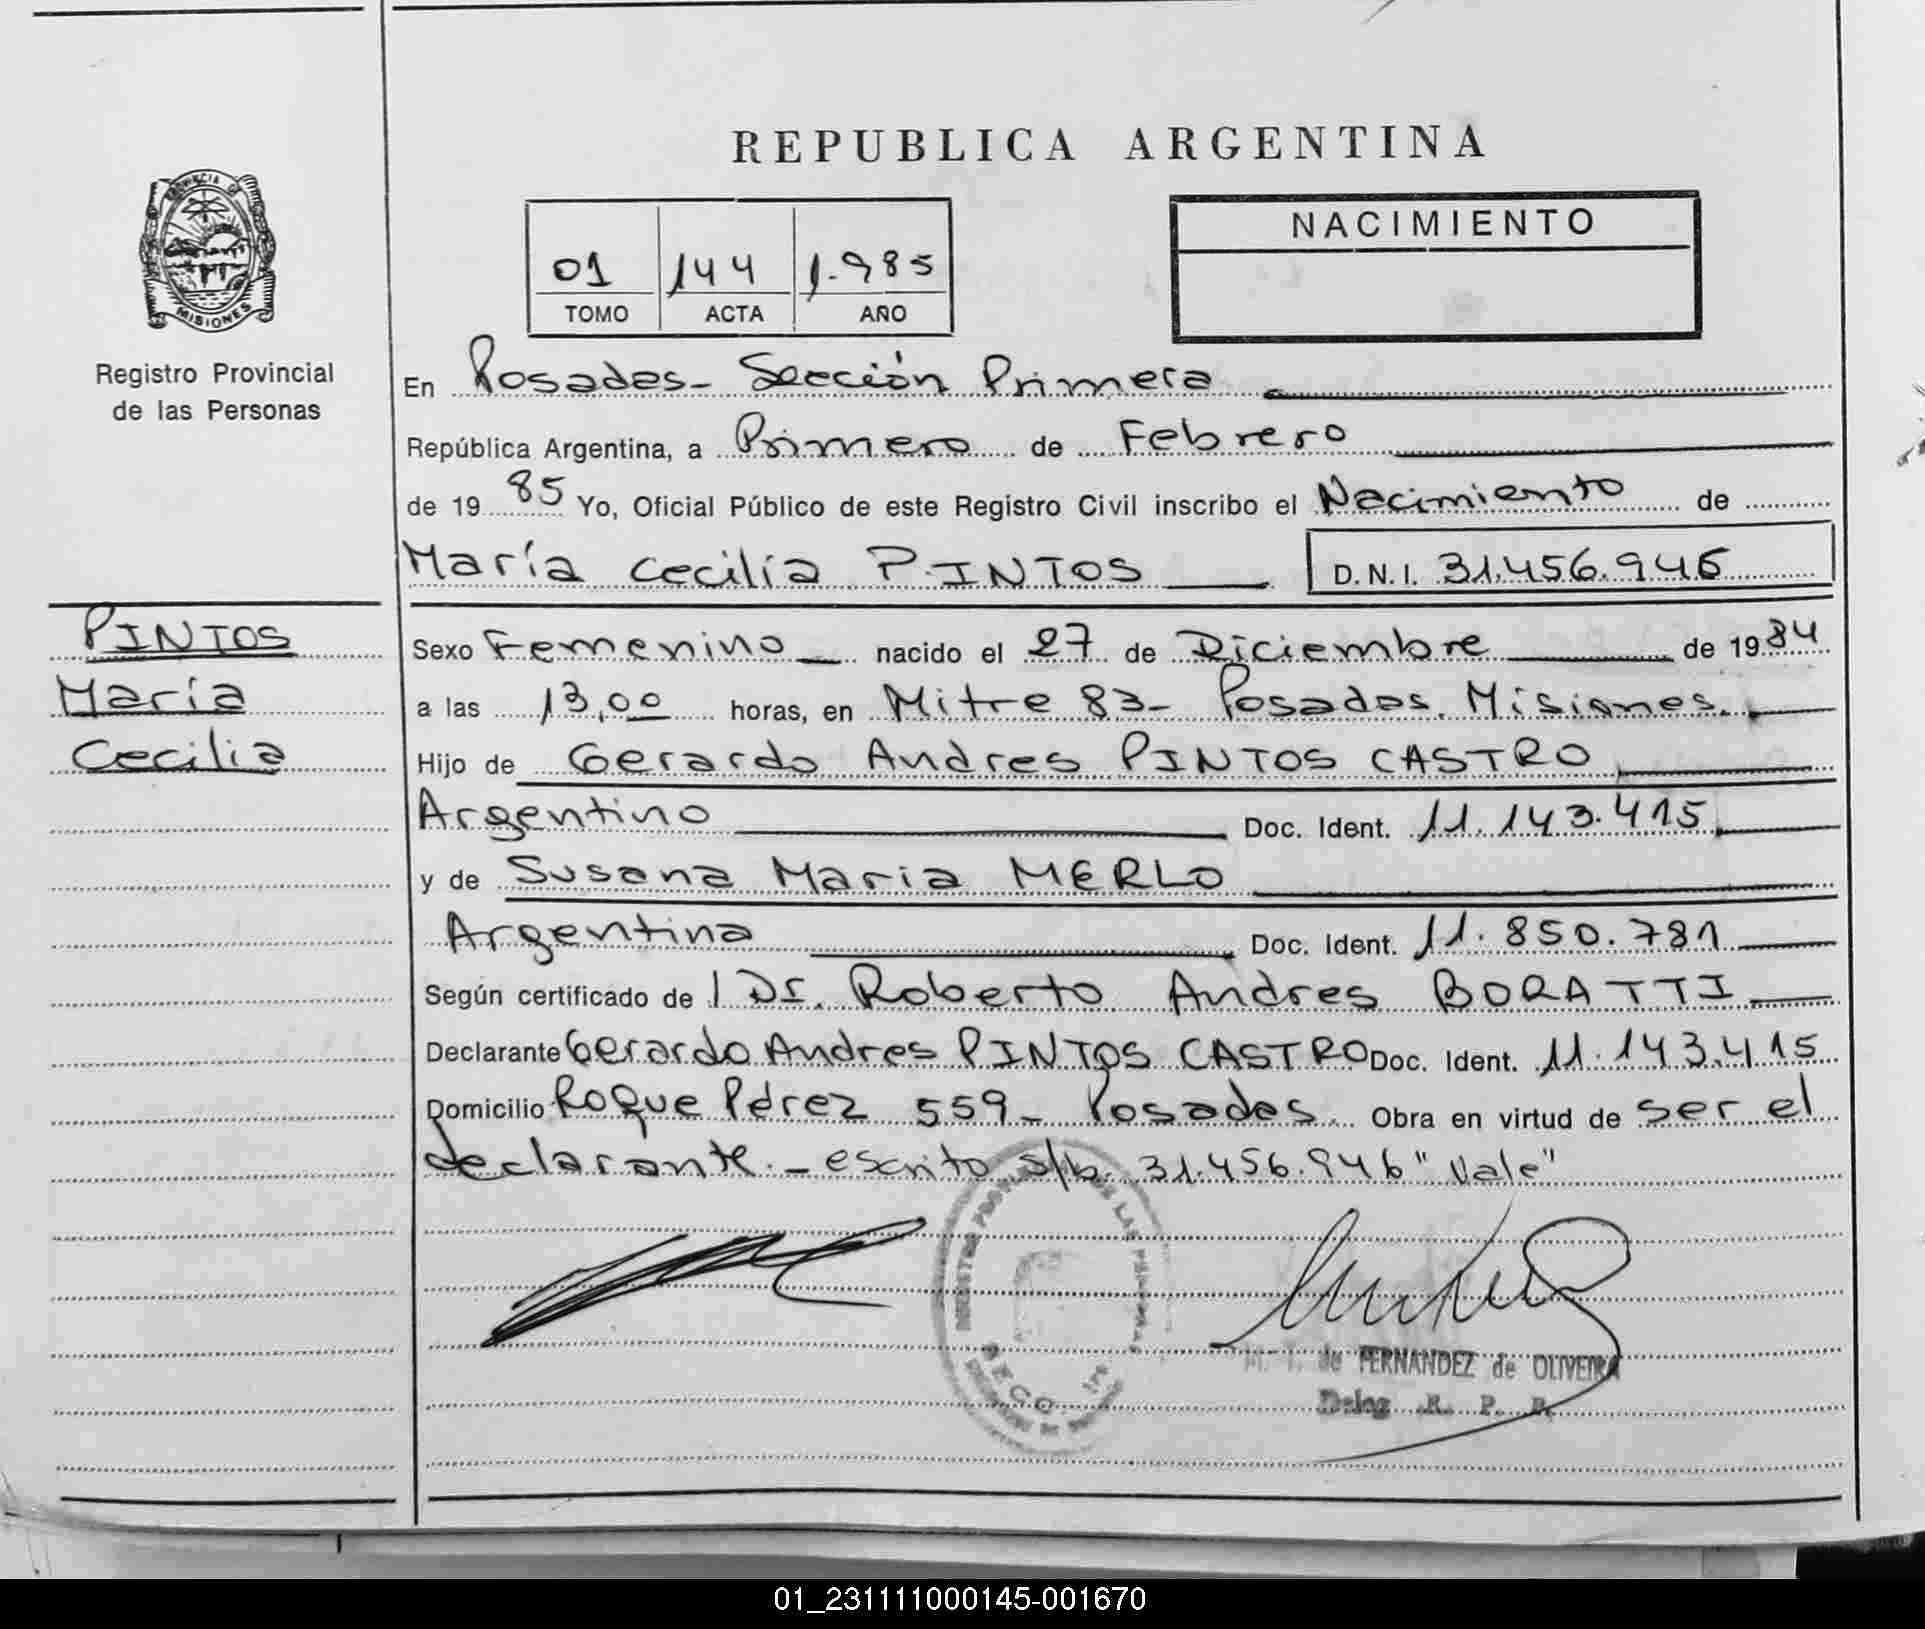 REPUBLICA ARGENTINA
PROVINCIA DE
MISIONES
Registro Provincial
de las Personas
01 144 1.985
TOMO ACTA AÑO
NACIMIENTO
En Posadas- Sección Primera
República Argentina, a Primero de Febrero
de 19 85 Yo, Oficial Público de este Registro Civil inscribo el Nacimiento de
María Cecilia PINTOS D.N.I. 31.456.946
PINTOS
María
Cecilia
Sexo Femenino nacido el 27 de Diciembre de 19 84
a las 13,00 horas, en Mitre 83- Posadas. Misiones.
Hijo de Gerardo Andres PINTOS CASTRO
Argentino Doc. Ident. 11.143.415
y de Susana Maria MERLO
Argentina Doc. Ident. 11.850.781
Según certificado de Dr. Roberto Andres BORATTI
Declarante Gerardo Andres PINTOS CASTRO Doc. Ident. 11.143.415
Domicilio Roque Pérez 559- Posadas. Obra en virtud de ser el
declarante.- escrito s/b. 31.456.946 "Vale"
REGISTRO DE LAS
SECC. 1ra
de FERNANDEZ de OLIVEIRA
Deleg. R. P. P.
01_231111000145-001670